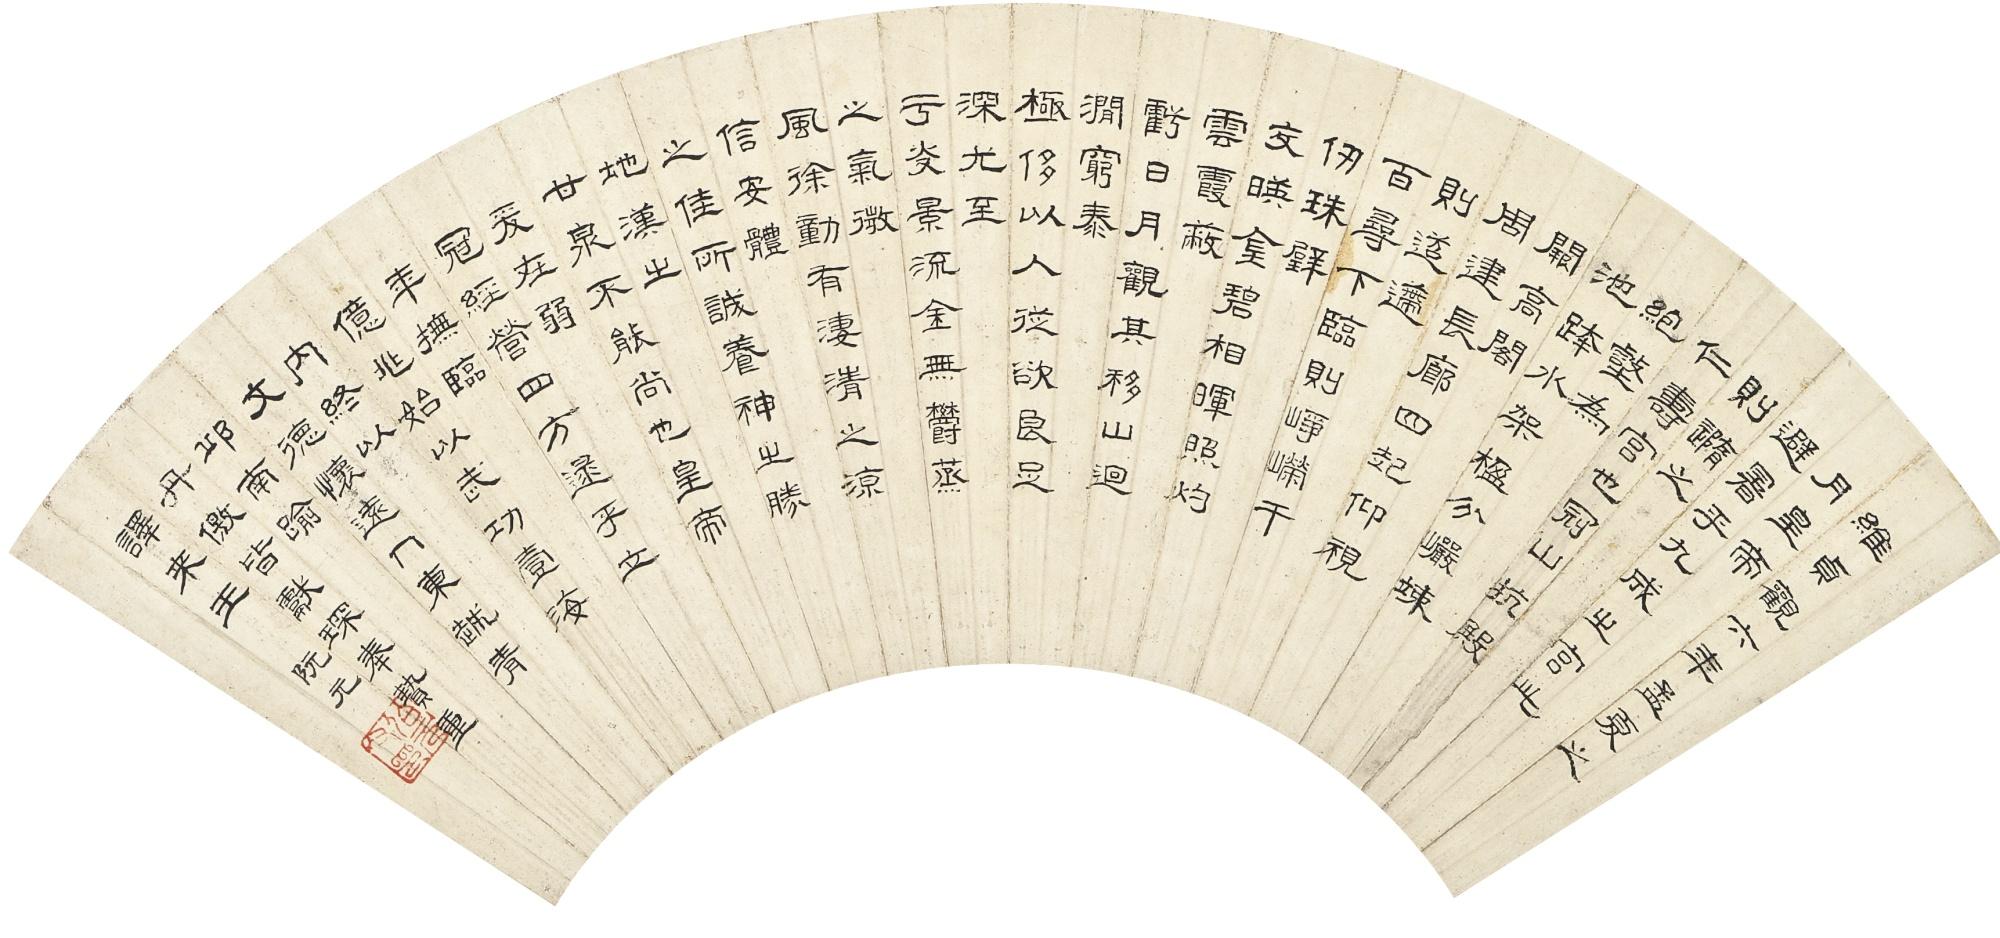 維貞觀六年孟夏之
月皇帝
避暑乎九成之宮此
則隨之
仁壽宮也冠山抗殿
絶壑為
池跨水架楹分巖竦
闕高閣
周建長廊四起仰視
則迢遰
百尋下臨則崢嶸千
仞珠璧
交暎金碧相暉照灼
雲霞蔽
虧日月觀其移山迴
澗窮泰
極侈以人從欲良足
深尤至
于炎景流金無欝蒸
之氣微
風徐動有淒清之涼
信安體
之佳所誠養神之勝
地漢之
甘泉不能尚也皇帝
爰在弱
冠經營四方逮乎立
年撫臨
億兆始以武功壹海
內終以
文德懷遠門東越青
邱南踰
丹徼皆獻琛奉贄重
譯来王
阮元